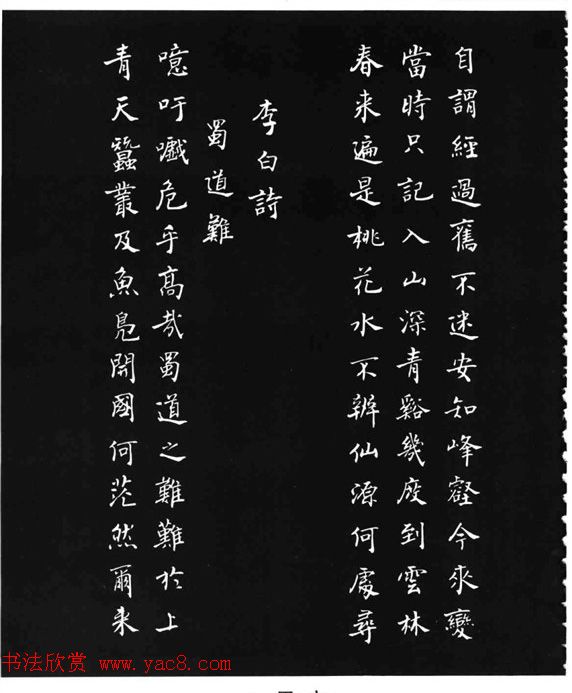 自謂經過舊不迷安知峰壑今來變
當時只記入山深青谿幾度到雲林
春来遍是桃花水不辨仙源何處尋
李白詩
蜀道難
噫吁嚱危乎髙哉蜀道之難難於上
青天蠶叢及魚鳧開國何茫然爾来
书法欣赏 www.yac8.com